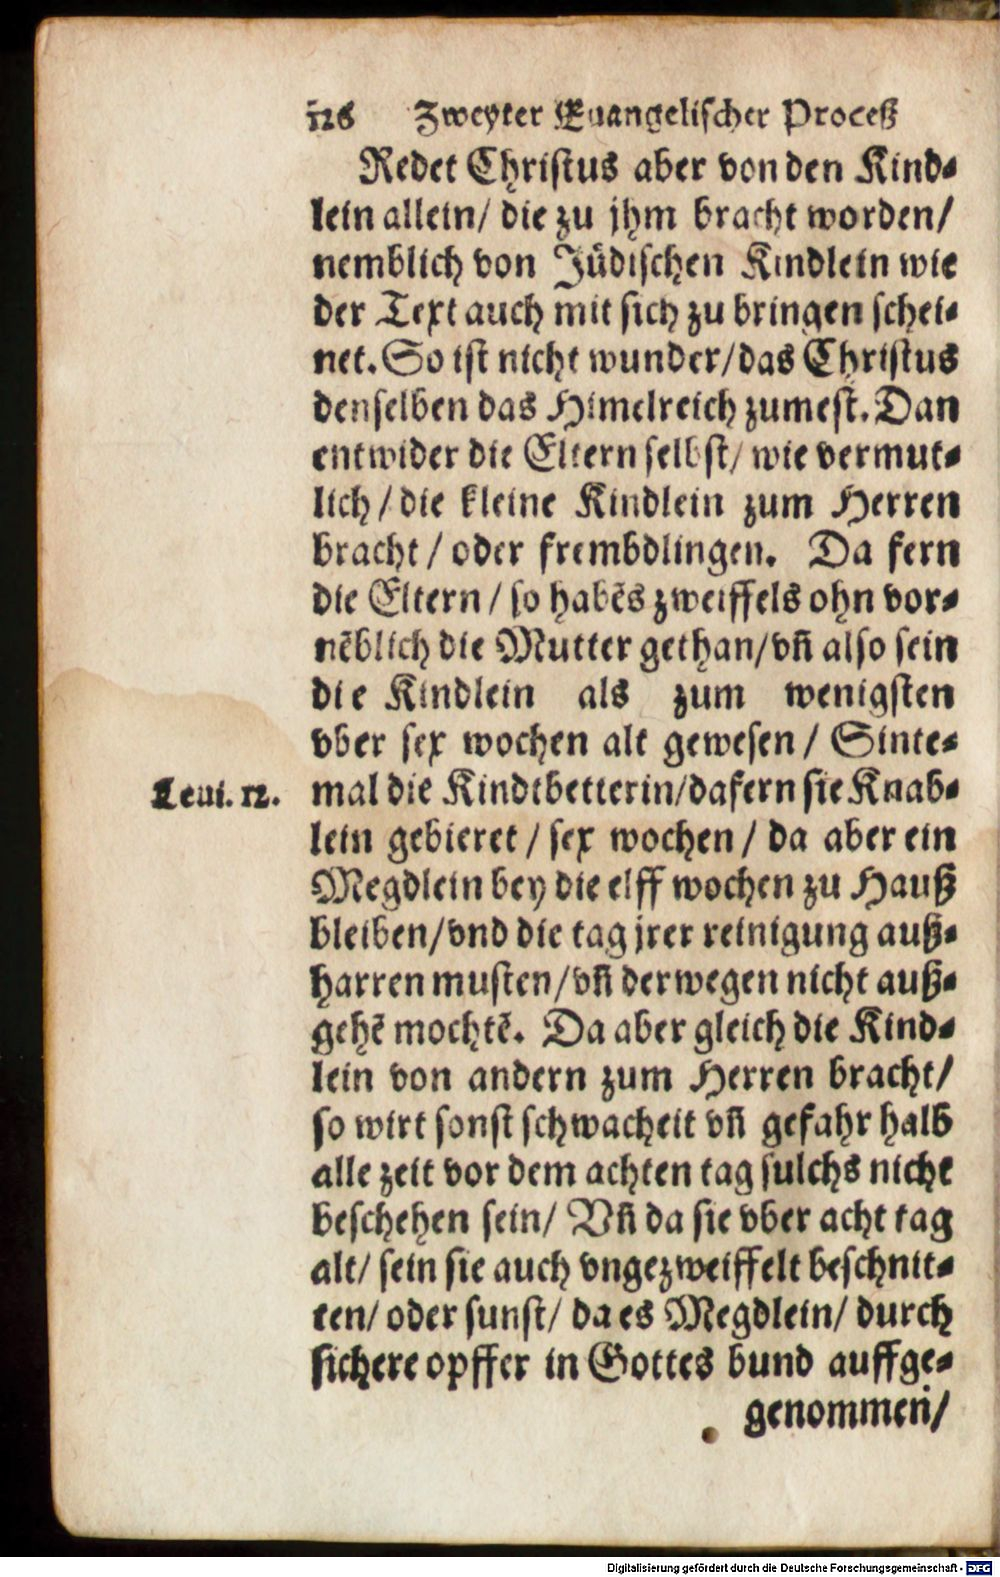 126 Zweyter Euangelischer Proceß
Redet Christus aber von den Kind⸗
lein allein/ die zu jhm bracht worden/
nemblich von Jüdischen Kindlein wie
der Text auch mit sich zu bringen schei⸗
net. So ist nicht wunder/ das Christus
denselben das Himelreich zumest. Dan
entwider die Eltern selbst/ wie vermut⸗
lich/ die kleine Kindlein zum Herren
bracht/ oder frembdlingen. Da fern
die Eltern/ so habẽs zweiffels ohn vor⸗
nẽblich die Mutter gethan/ vñ also sein
die Kindlein als zum wenigsten
vber sex wochen alt gewesen/ Sinte⸗
Leui. 12. mal die Kindtbetterin/ dafern sie Knab⸗
lein gebieret/ sex wochen/ da aber ein
Megdlein bey die elff wochen zu Hauß
bleiben/ vnd die tag jrer reinigung auß⸗
harren musten/ vñ derwegen nicht auß⸗
gehẽ mochtẽ. Da aber gleich die Kind⸗
lein von andern zum Herren bracht/
so wirt sonst schwacheit vñ gefahr halb
alle zeit vor dem achten tag sulchs nicht
beschehen sein/ Vñ da sie vber acht tag
alt/ sein sie auch vngezweiffelt beschnit⸗
ten/ oder sunst/ da es Megdlein/ durch
sichere opffer in Gottes bund auffge⸗
genommen/
Digitalisierung gefördert durch die Deutsche Forschungsgemeinschaft - DFG